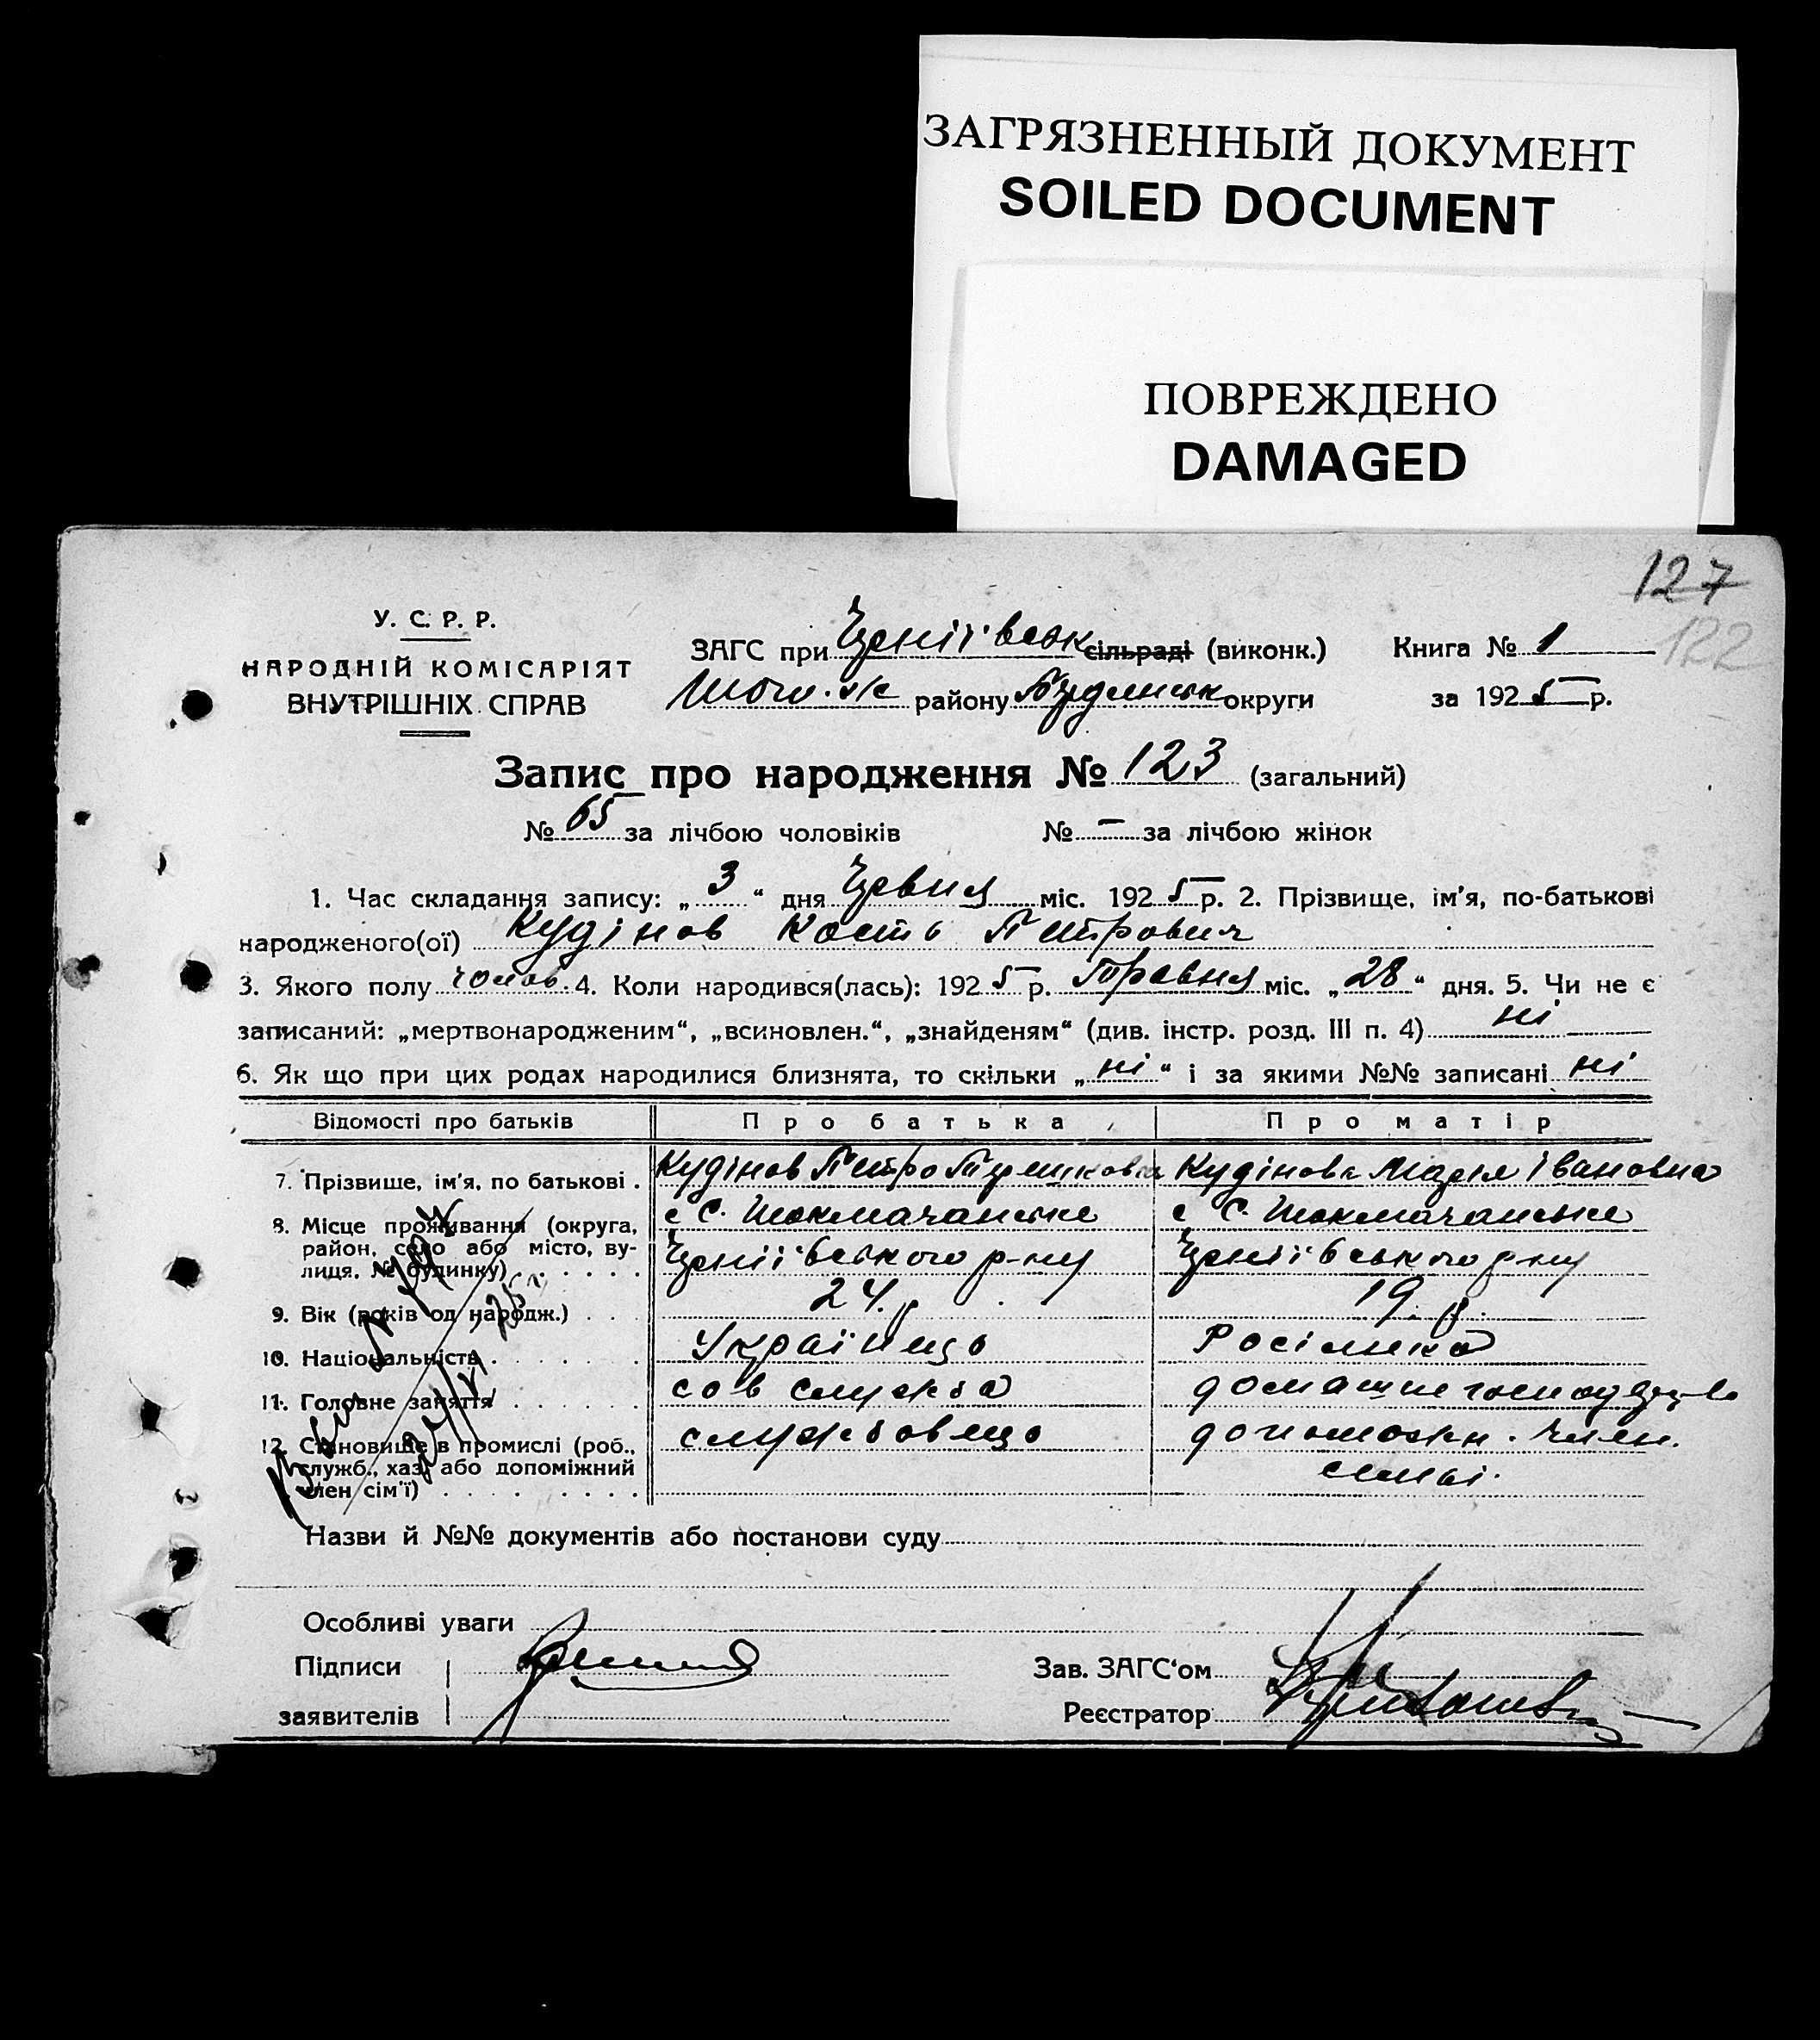 ЗАГРЯЗНЕННЫЙ ДОКУМЕНТ
SOILED DOCUMENT
ПОВРЕЖДЕНО
DAMAGED
127
122
У. С. Р. Р.
НАРОДНІЙ КОМІСАРІЯТ
ВНУТРІШНІХ СПРАВ
ЗАГС при сільраді (виконк.) Книга № 1
району округи за 1925 р.
Запис про народження № 123 (загальний)
№ 65 за лічбою чоловіків № – за лічбою жінок
1. Час складання запису: „3“ дня Червня міс. 1925 р. 2. Прізвище, ім'я, по-батькові
народженого(ої) Кудінов Кость Петрович
3. Якого полу чолов. 4. Коли народився(лась): 1925 р. Травня міс. „28“ дня. 5. Чи не є
записаний: „мертвонародженим“, „всиновлен.“, „знайденям“ (див. інстр. розд. III п. 4) ні
6. Як що при цих родах народилися близнята, то скільки „ні“ і за якими №№ записані ні
Відомості про батьків Про батька Про матір
7. Прізвище, ім'я, по батькові . Кудінов Петро Кудінова Марія Івановна
8. Місце проживання (округа,
район, село або місто, ву-
лиця, № будинку) . . . . . . р-ну р-ну
9. Вік (років од народж.) . . . 24 р. 19 р.
10. Національність . . . . . . Українець Росіянка
11. Головне заняття . . . . . . сов служба
12. Становище в промислі (роб., службовець допоможн. член.
служб., хаз. або допоміжний сімʼї.
член сім'ї) . . . . . . . . .
Назви й №№ документів або постанови суду
Особливі уваги
Підписи Зав. ЗАГС'ом
заявителів Реєстратор